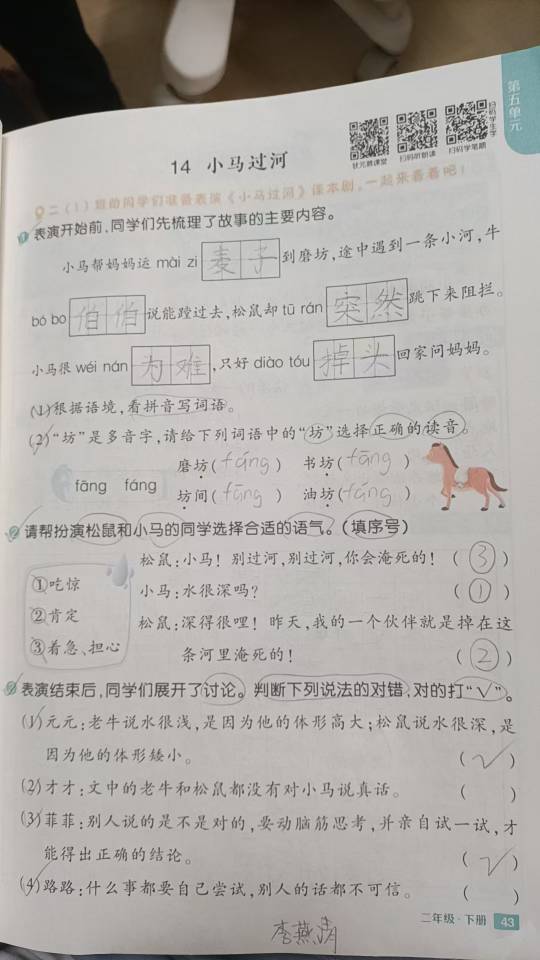 第五单元
状元微课堂
扫码听朗读
扫码学笔顺
扫码学生字
14 小马过河
二(1)班的同学们准备表演《小马过河》课本剧,一起来看看吧!
1 表演开始前,同学们先梳理了故事的主要内容。
小马帮妈妈运 mài zi 麦子 到磨坊,途中遇到一条小河,牛
bó bo 伯伯 说能蹚过去,松鼠却 tū rán 突然 跳下来阻拦。
小马很 wéi nán 为难 ,只好 diào tóu 掉头 回家问妈妈。
(1)根据语境,看拼音写词语。
(2)“坊”是多音字,请给下列词语中的“坊”选择正确的读音。
fāng fáng
磨坊(fáng) 书坊(fāng)
坊间(fāng) 油坊(fáng)
2 请帮扮演松鼠和小马的同学选择合适的语气。(填序号)
①吃惊
②肯定
③着急、担心
松鼠:小马!别过河,别过河,你会淹死的!(③)
小马:水很深吗?(①)
松鼠:深得很哩!昨天,我的一个伙伴就是掉在这
条河里淹死的!(②)
3 表演结束后,同学们展开了讨论。判断下列说法的对错,对的打“√”。
(1)元元:老牛说水很浅,是因为他的体形高大;松鼠说水很深,是
因为他的体形矮小。(√)
(2)才才:文中的老牛和松鼠都没有对小马说真话。( )
(3)菲菲:别人说的是不是对的,要动脑筋思考,并亲自试一试,才
能得出正确的结论。(√)
(4)路路:什么事都要自己尝试,别人的话都不可信。( )
二年级·下册 43
李燕清